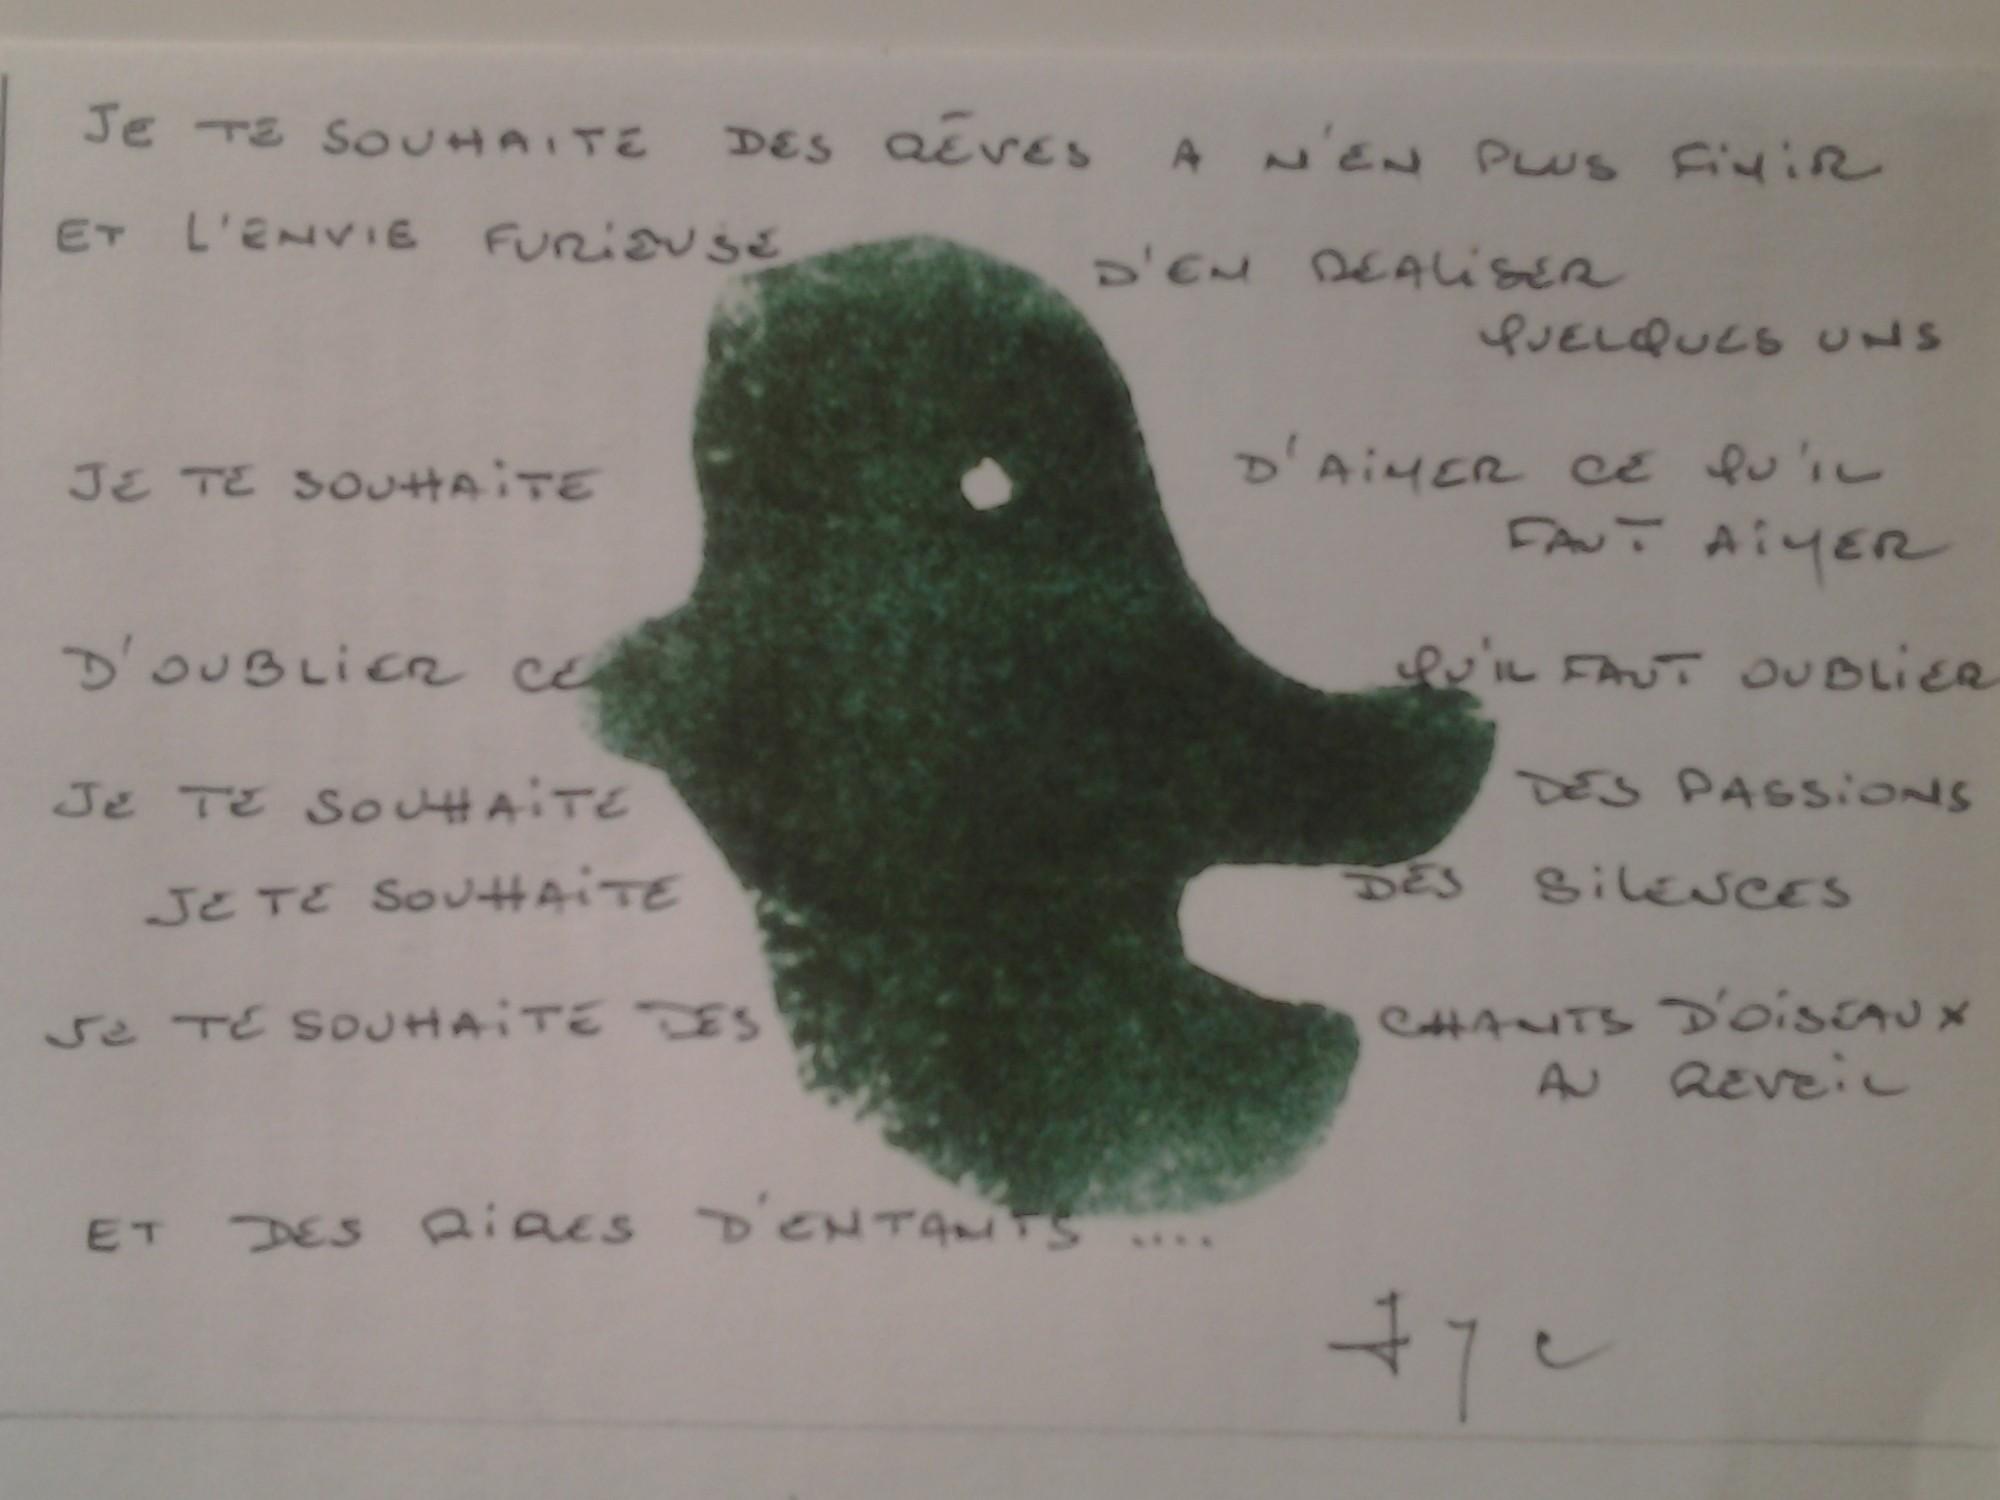 JE TE SOUHAITE DES RÊVES A N'EN PLUS FINIR
ET L'ENVIE FURIEUSE D'EN REALISER
QUELQUES UNS
JE TE SOUHAITE D'AIMER CE QU'IL
FAUT AIMER
D'OUBLIER CE QU'IL FAUT OUBLIER
JE TE SOUHAITE DES PASSIONS
JE TE SOUHAITE DES SILENCES
JE TE SOUHAITE DES CHANTS D'OISEAUX
AU REVEIL
ET DES RIRES D'ENFANTS ....